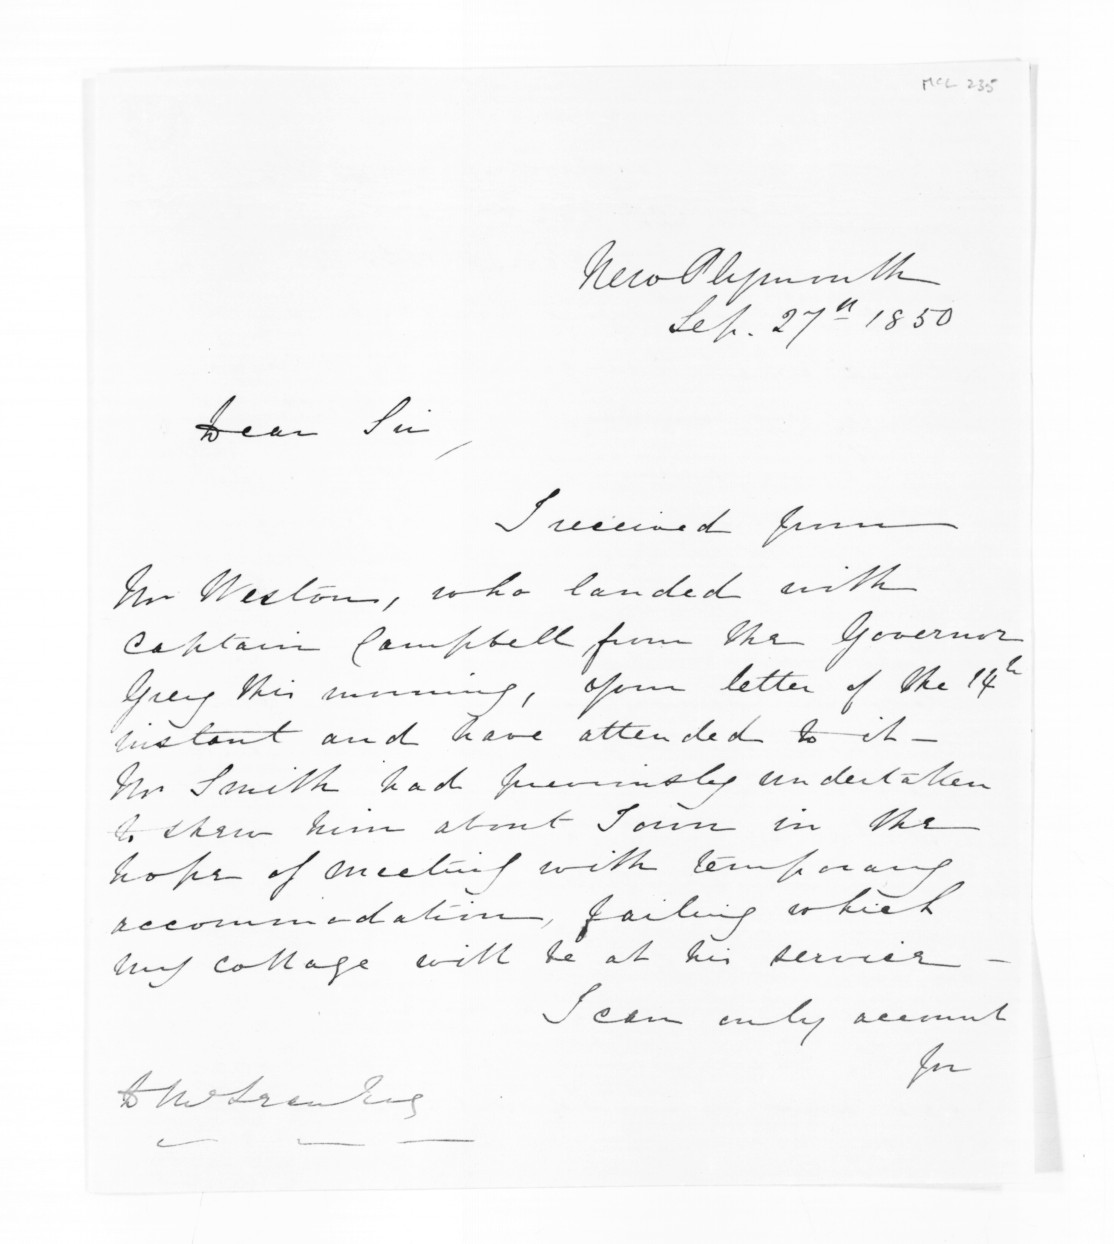 McL 235
New Plymouth
Sep. 27th 1850
Dear Sir,
I received from
Mr Weston, who landed with
Captain Campbell from the Governor
Grey this morning, your letter of the 14th
instant and have attended to it -
Mr Smith had previously undertaken
to shew him about Town in the
hope of meeting with temporary
accommodation, failing which
my cottage will be at his service -
I can only account
for
D McLean Esq